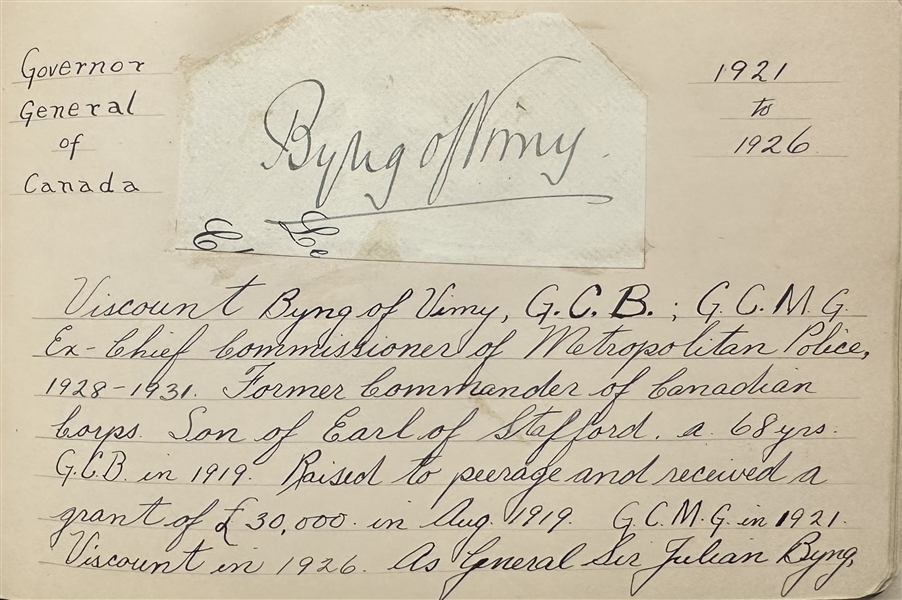 Governor
General
of
Canada
Byng of Vimy.
1921
to
1926
Viscount Byng of Vimy, G.C.B.; G.C.M.G.
Ex-Chief Commissioner of Metropolitan Police,
1928-1931. Former Commander of Canadian
Corps. Son of Earl of Stafford. a. 68 yrs.
G.C.B. in 1919. Raised to peerage and received a
grant of £30,000. in Aug. 1919. G.C.M.G. in 1921.
Viscount in 1926. As General Sir Julian Byng,